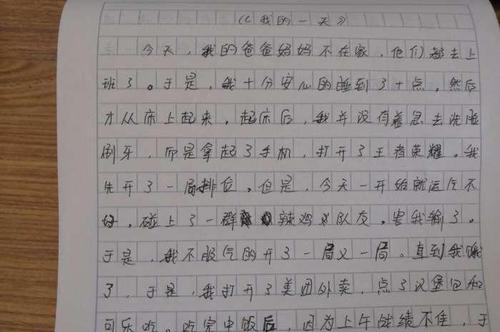 《我的一天》
今天，我的爸爸妈妈不在家，他们都去上
班了。于是，我十分安心的睡到了十点，然后
才从床上起来，起床后，我并没有着急去洗脸
刷牙，而是拿起了手机，打开了王者荣耀。我
先开了一局排位。但是，今天一开始就运气不
好，碰上了一群辣鸡队友。害我输了。
于是，我不服气的开了一局又一局。直到我饿
了，于是，我打开了美团外卖，点了汉堡包和
可乐吃。吃完中饭后，因为上午战绩不佳，于